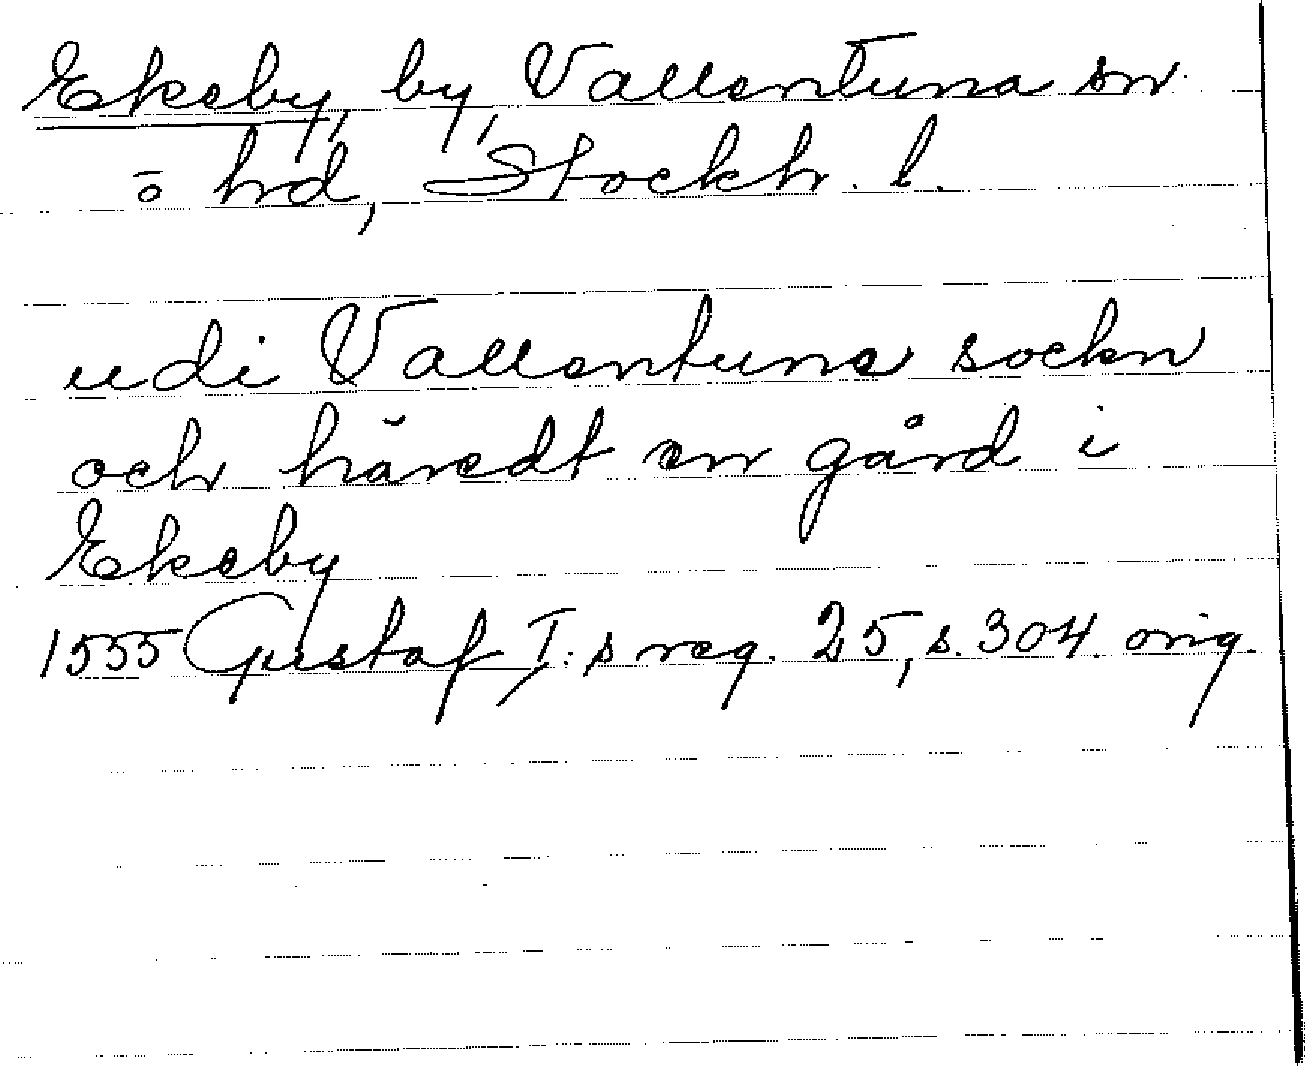 Ekeby, by, Vallentuna sn
o hd, Stockh. l.
udi Vallentune sockn
och häredt en gård i
Ekeby
1555 Gustaf I:s reg. 25, s. 304. orig.